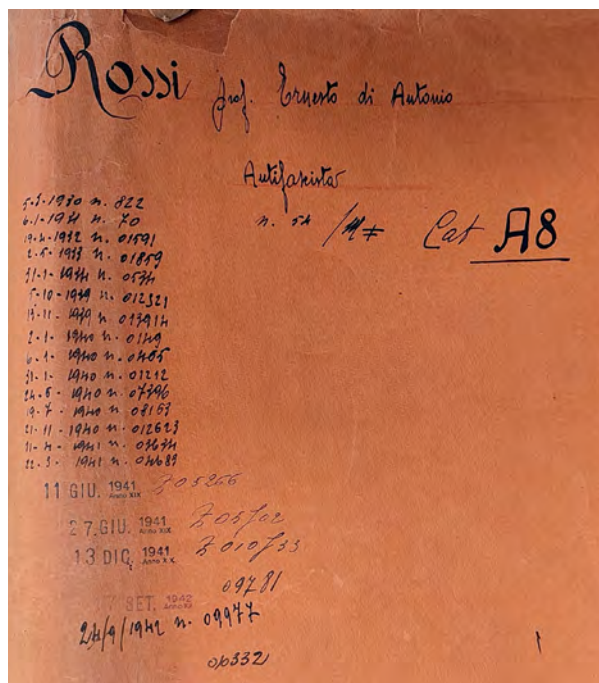 Rossi prof. Ernesto di Antonio
Antifascista
n. 54 Cat A8
5-3-1930 n. 822
6-1-1931 n. 70
19-4-1932 n. 01591
2-5-1933 n. 01859
31-1-1934 n. 0534
5-10-1939 n. 012321
13-11-1939 n. 013914
2-1-1940 n. 0149
6-1-1940 n. 0465
31-1-1940 n. 01212
24-6-1940 n. 07396
19-7-1940 n. 08163
21-11-1940 n. 012623
11-4-1941 n. 03634
22-5-1941 n. 04689
11 GIU. 1941 Anno XIX 205266
27. GIU. 1941 Anno XIX
13 DIC. 1941 Anno XX
09781
SET. 1942
24/9/1942 n. 09977